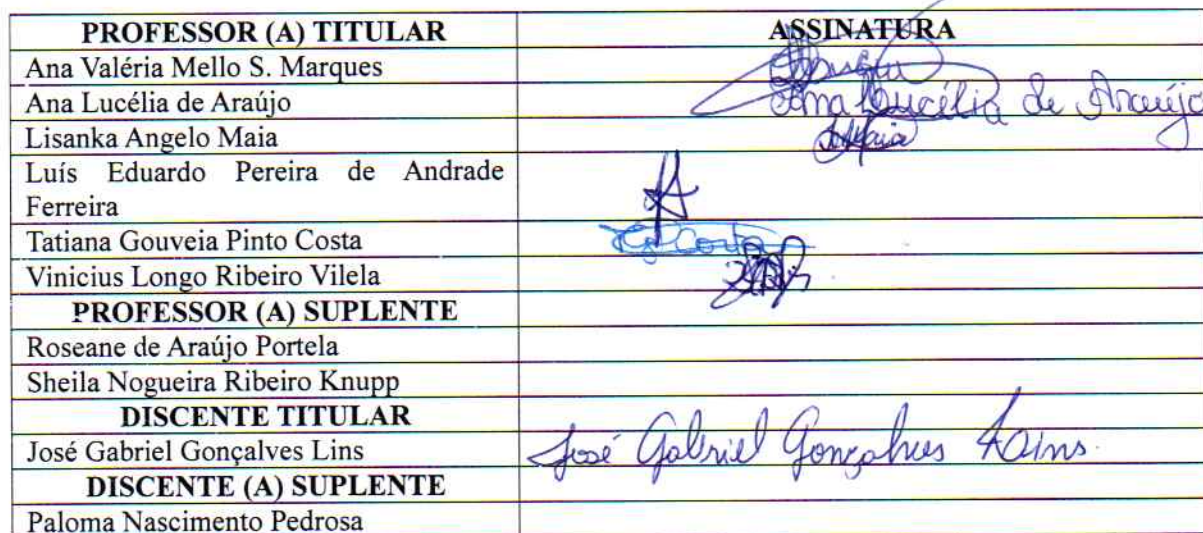 PROFESSOR (A) TITULAR ASSINATURA
Ana Valéria Mello S. Marques
Ana Lucélia de Araújo Ana Lucélia de Araújo
Lisanka Angelo Maia Maia
Luís Eduardo Pereira de Andrade
Ferreira
Tatiana Gouveia Pinto Costa Costa
Vinicius Longo Ribeiro Vilela
PROFESSOR (A) SUPLENTE
Roseane de Araújo Portela
Sheila Nogueira Ribeiro Knupp
DISCENTE TITULAR
José Gabriel Gonçalves Lins José Gabriel Gonçalves Lins.
DISCENTE (A) SUPLENTE
Paloma Nascimento Pedrosa